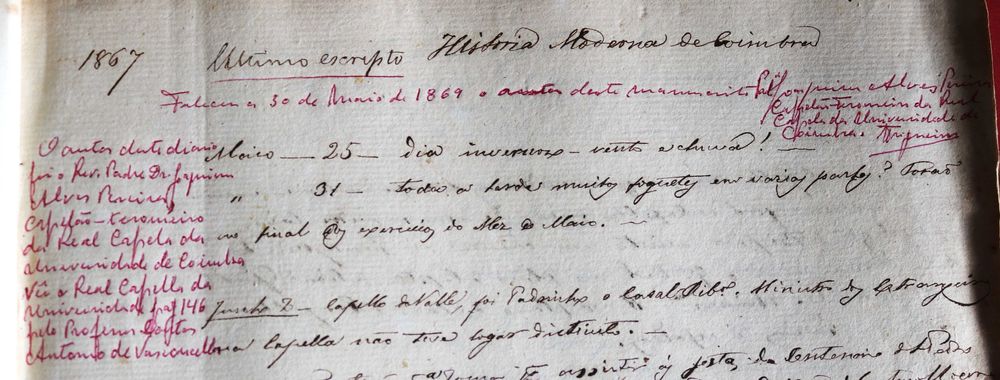 1867 Ultimo escripto Historia Moderna de Coimbra
Faleceu a 30 de Maio de 1869 o autor deste manuscrito Pe Joaquim Alves Pereira
Capelão tesoureiro da Real
Capela da Universidade de
Coimbra
O autor deste diario
foi o Rev. Padre Dr. Joaquim
Alves Pereira
Capelão-tesoureiro
da Real Capela da
Universidade de Coimbra
Vê a Real Capella da
Universidade pag 146
pelo Professor Doutor
Antonio de Vasconcellos
Maio — 25 — dia invernoso — vento e chuva! —
" 31 — toda a tarde muitos foguetes em varias partes? Forão
no final dos exercicios do Mez de Maio. —
Junho 2 — Capello do Valle, foi Padrinho o Casal Ribro. Ministro dos Estrangeiros
na Capella não teve logar distincto. —
assistir ás festas do Centenario de